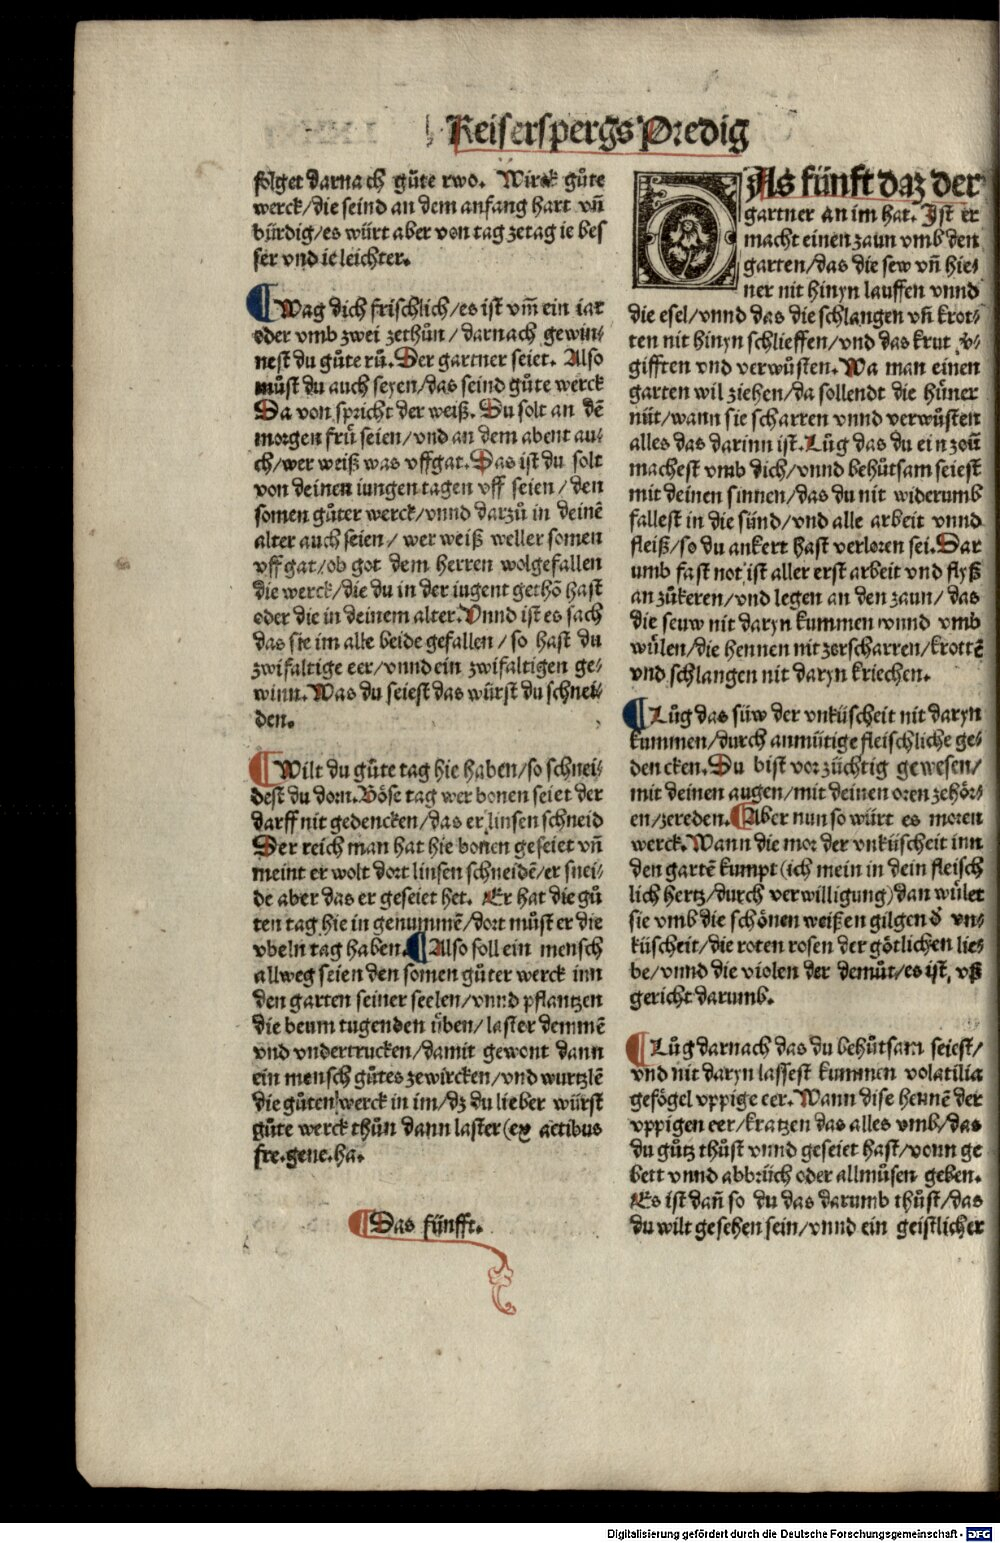 Keiserspergs Predig
folget darnach gůte rwo. Wirck gůte
werck/die seind an dem anfang hart vñ
bürdig/es würt aber von tag zetag ie bes
ser vnd ie leichter.
¶Wag dich frischlich/es ist vm̃ ein iar
oder vmb zwei zethůn/darnach gewin⸗
nest du gůte rů. Der gartner seiet. Also
můst du auch seyen/das seind gůte werck
Da von spricht der weiß. Du solt an dẽ
morgen frů seien/vnd an dem abent au⸗
ch/wer weiß was vffgat. Das ist du solt
von deinen iungen tagen vff seien/den
somen gůter werck/vnnd darzů in deinẽ
alter auch seien/ wer weiß weller somen
vff gat/ob got dem herren wolgefallen
die werck/die du in der iugent gethõ hast
oder die in deinem alter. Vnnd ist es sach
das sie im alle beide gefallen/ so hast du
zwifaltige eer/vnnd ein zwifaltigen ge⸗
winn. Was du seiest das würst du schnei⸗
den.
¶Wilt du gůte tag hie haben/so schnei⸗
dest du dorn. Böse tag wer bonen seiet der
darff nit gedencken/das er linsen schneid
Der reich man hat hie bonen geseiet vñ
meint er wolt dort linsen schneidẽ/er snei⸗
de aber das er geseiet het. Er hat die gů
ten tag hie in genummẽ/dort můst er die
vbeln tag haben. ¶Also soll ein mensch
allweg seien den somen gůter werck inn
den garten seiner seelen/vnnd pflantzen
die beum tugenden üben/laster demmẽ
vnd vndertrucken/damit gewont dann
ein mensch gůtes zewircken/vnd wurtzlẽ
die gůten werck in im/dz du lieber würst
gůte werck thůn dann laster (ex actibus
fre.gene.ha.
¶Das fünfft.
DAs fünft daz der
gartner an im hat. Ist er
macht einen zaun vmb den
garten/das die sew vñ hie⸗
ner nit hinyn lauffen vnnd
die esel/vnnd das die schlangen vñ krot⸗
ten nit hinyn schlieffen/vnd das krut v⸗
gifften vnd verwüsten. Wa man einen
garten wil ziehen/da sollendt die hüner
nüt/wann sie scharren vnnd verwüsten
alles das darinn ist. Lůg das du ein zoũ
machest vmb dich/vnnd behůtsam seiest
mit deinen sinnen/das du nit widerumb
fallest in die sünd/vnd alle arbeit vnnd
fleiß/so du ankert hast verloren sei. Dar
umb fast not ist aller erst arbeit vnd flyß
an zůkeren/vnd legen an den zaun/ das
die seuw nit daryn kummen vnnd vmb
wülen/die hennen nit zerscharren/krottẽ
vnd schlangen nit daryn kriechen.
¶Lůg das süw der vnküscheit nit daryn
kummen/durch anmütige fleischliche ge⸗
den cken. Du bist vor züchtig gewesen/
mit deinen augen/mit deinen oren zehör⸗
en/zereden. ¶Aber nun so würt es moren
werck. Wann die mor der vnküscheit inn
den gartẽ kumpt (ich mein in dein fleisch
lich hertz/durch verwilligung) dan wület
sie vmb die schönen weißen gilgen d̕ vn⸗
küscheit/die roten rosen der götlichen lie⸗
be/vnnd die violen der demůt/es ist vß
gericht darumb.
¶Lůg darnach das du behůtsam seiest/
vnd nit daryn lassest kummen volatilia
gefögel vppige eer. Wann dise hennẽ der
vppigen eer/kratzen das alles vmb/das
du gůtz thůst vnnd geseiet hast/vonn ge
bett vnnd abbrüch oder allmůsen geben.
Es ist dañ so du das darumb thůst/das
du wilt gesehen sein/vnnd ein geistlicher
Digitalisierung gefördert durch die Deutsche Forschungsgemeinschaft - DFG